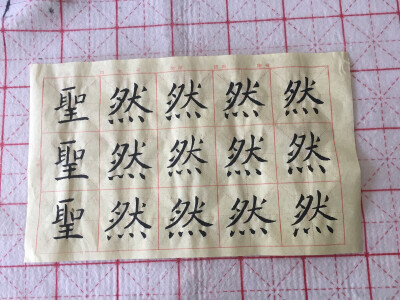 聖然然然然
聖然然然然
聖然然然然